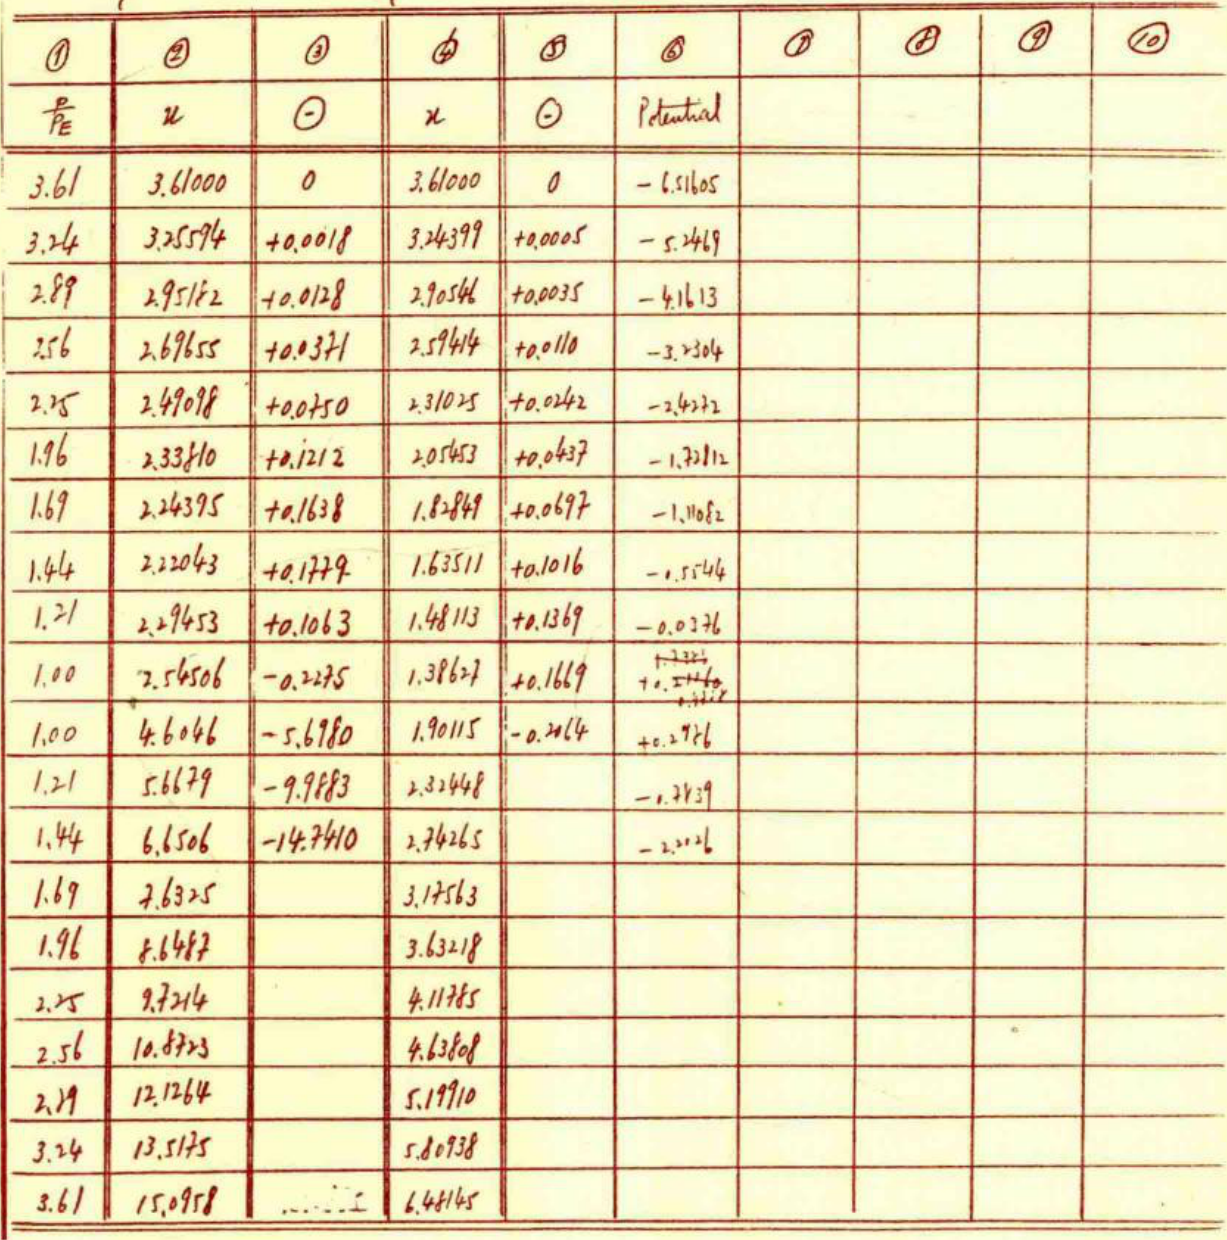 ① ② ③ ④ ⑤ ⑥ ⑦ ⑧ ⑨ ⑩
P/PE x ⊖ x ⊖ Potential
3.61 3.61000 0 3.61000 0 - 6.51605
3.24 3.25594 +0.0018 3.24399 +0.0005 - 5.2469
2.89 2.95182 +0.0128 2.90546 +0.0035 - 4.1613
2.56 2.69655 +0.0371 2.59414 +0.0110 -3.2304
2.25 2.49098 +0.0750 2.31025 +0.0242 -2.4272
1.96 2.33810 +0.1212 2.05453 +0.0437 -1.72812
1.69 2.24395 +0.1638 1.82849 +0.0697 -1.11082
1.44 2.22043 +0.1779 1.63511 +0.1016 -0.5544
1.21 2.29453 +0.1063 1.48113 +0.1369 -0.0376
1.00 2.54506 -0.2275 1.38627 +0.1669
1.00 4.6046 -5.6980 1.90115 -0.2064 +0.2976
1.21 5.6679 -9.9883 2.32448 -0.7839
1.44 6.6506 -14.7410 2.74265 - 2.2026
1.69 7.6325 3.17563
1.96 8.6487 3.63218
2.25 9.7214 4.11785
2.56 10.8723 4.63808
2.89 12.1264 5.19910
3.24 13.5175 5.80938
3.61 15.0958 6.48145